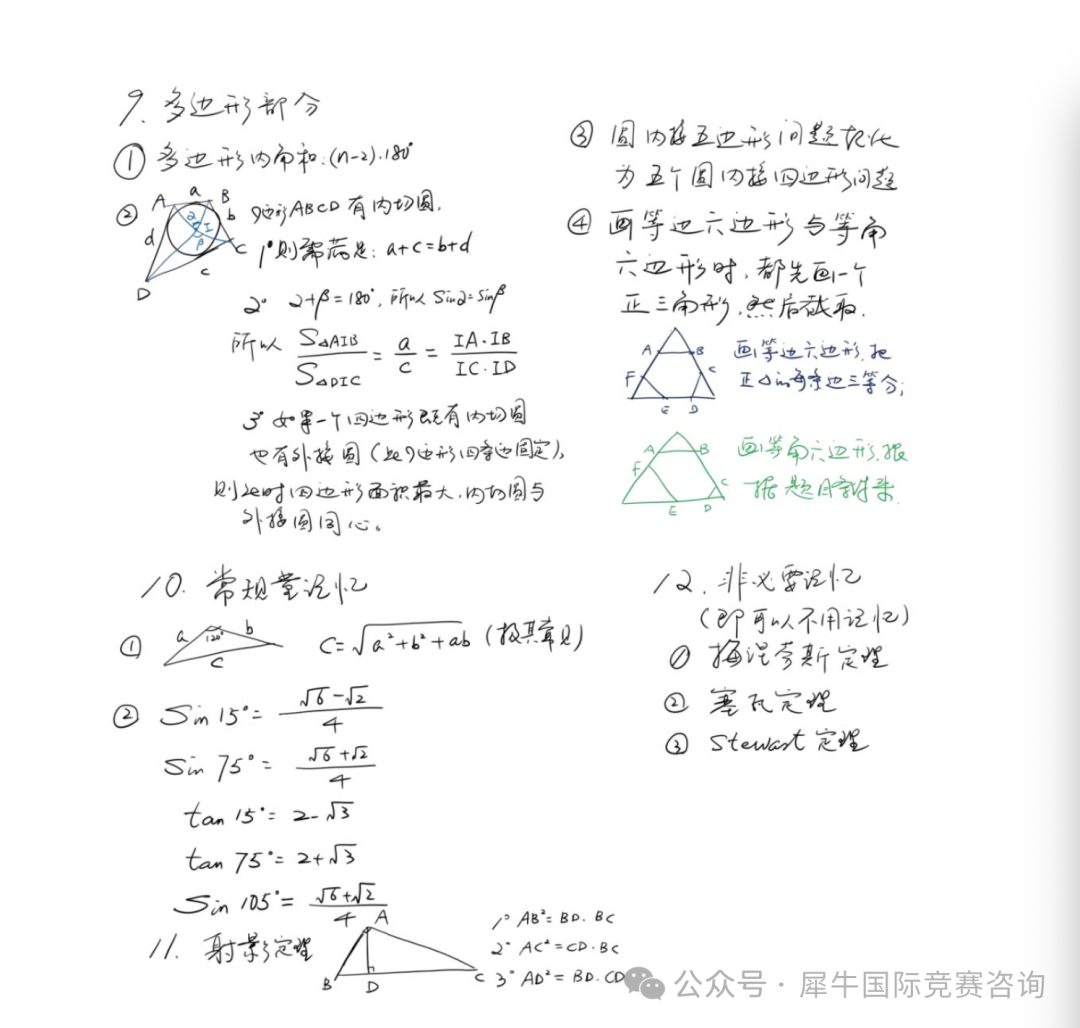 9. 多边形部分
① 多边形内角和:(n-2)·180°
② A a B b C c D d I α β
四边形ABCD有内切圆.
1° 则需满足: a+c=b+d
2° α+β=180°, 所以 Sinα=Sinβ
所以 S△AIB/S△DIC = a/c = IA·IB/IC·ID
3° 如果一个四边形既有内切圆
也有外接圆(此四边形四条边固定),
则此时四边形面积最大,内切圆与
外接圆同心。
③ 圆内接五边形问题转化
为五个圆内接四边形问题
④ 画等边六边形与等角
六边形时,都先画一个
正三角形,然后截取.
A B C D E F
画等边六边形,把
正△的每条边三等分;
A B C D E F
画等角六边形,根
据题目条件来.
10. 常规量记忆
① a 120° b c C=√a²+b²+ab (极其常见)
② Sin 15°= √6-√2/4
Sin 75°= √6+√2/4
tan 15°= 2-√3
tan 75°= 2+√3
Sin 105°= √6+√2/4
11. 射影定理
A B D C
1° AB²=BD·BC
2° AC²=CD·BC
3° AD²=BD·CD
12. 非必要记忆
(即可以不用记忆)
① 梅涅劳斯定理
② 塞瓦定理
③ Stewart定理
公众号·犀牛国际竞赛咨询